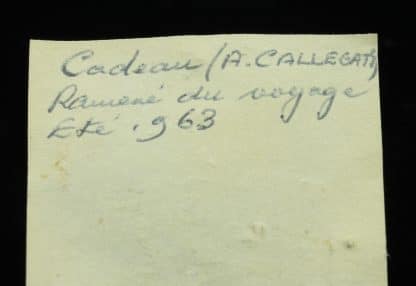 Cadeau (A. CALLEGATI)
Ramené du voyage
Eté .963